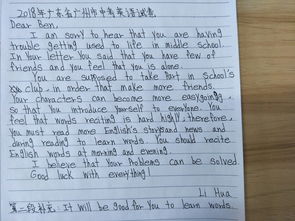 2018年广东省广州市中考英语试卷.
Dear Ben,
I am sorry to hear that you are having
trouble getting used to life in middle school.
In your letter you said that you have few of
friends and you feel that you is alone.
You are supposed to take part in school's
club, in order that make more friends.
Your characters can become more easygoing,
so that you introduce yourself to everyone. You
feel that words reciting is hard highly, therefore,
you must read more English's story and news and
during reading to learn words. You should recite
English words at morning and evening.
I believe that your problems can be solved.
Good luck with everything!
Li Hua
第二段补充: It will be good for you to learn words.